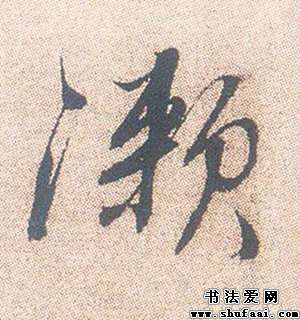 濑
书法爱网
www.shufaai.com